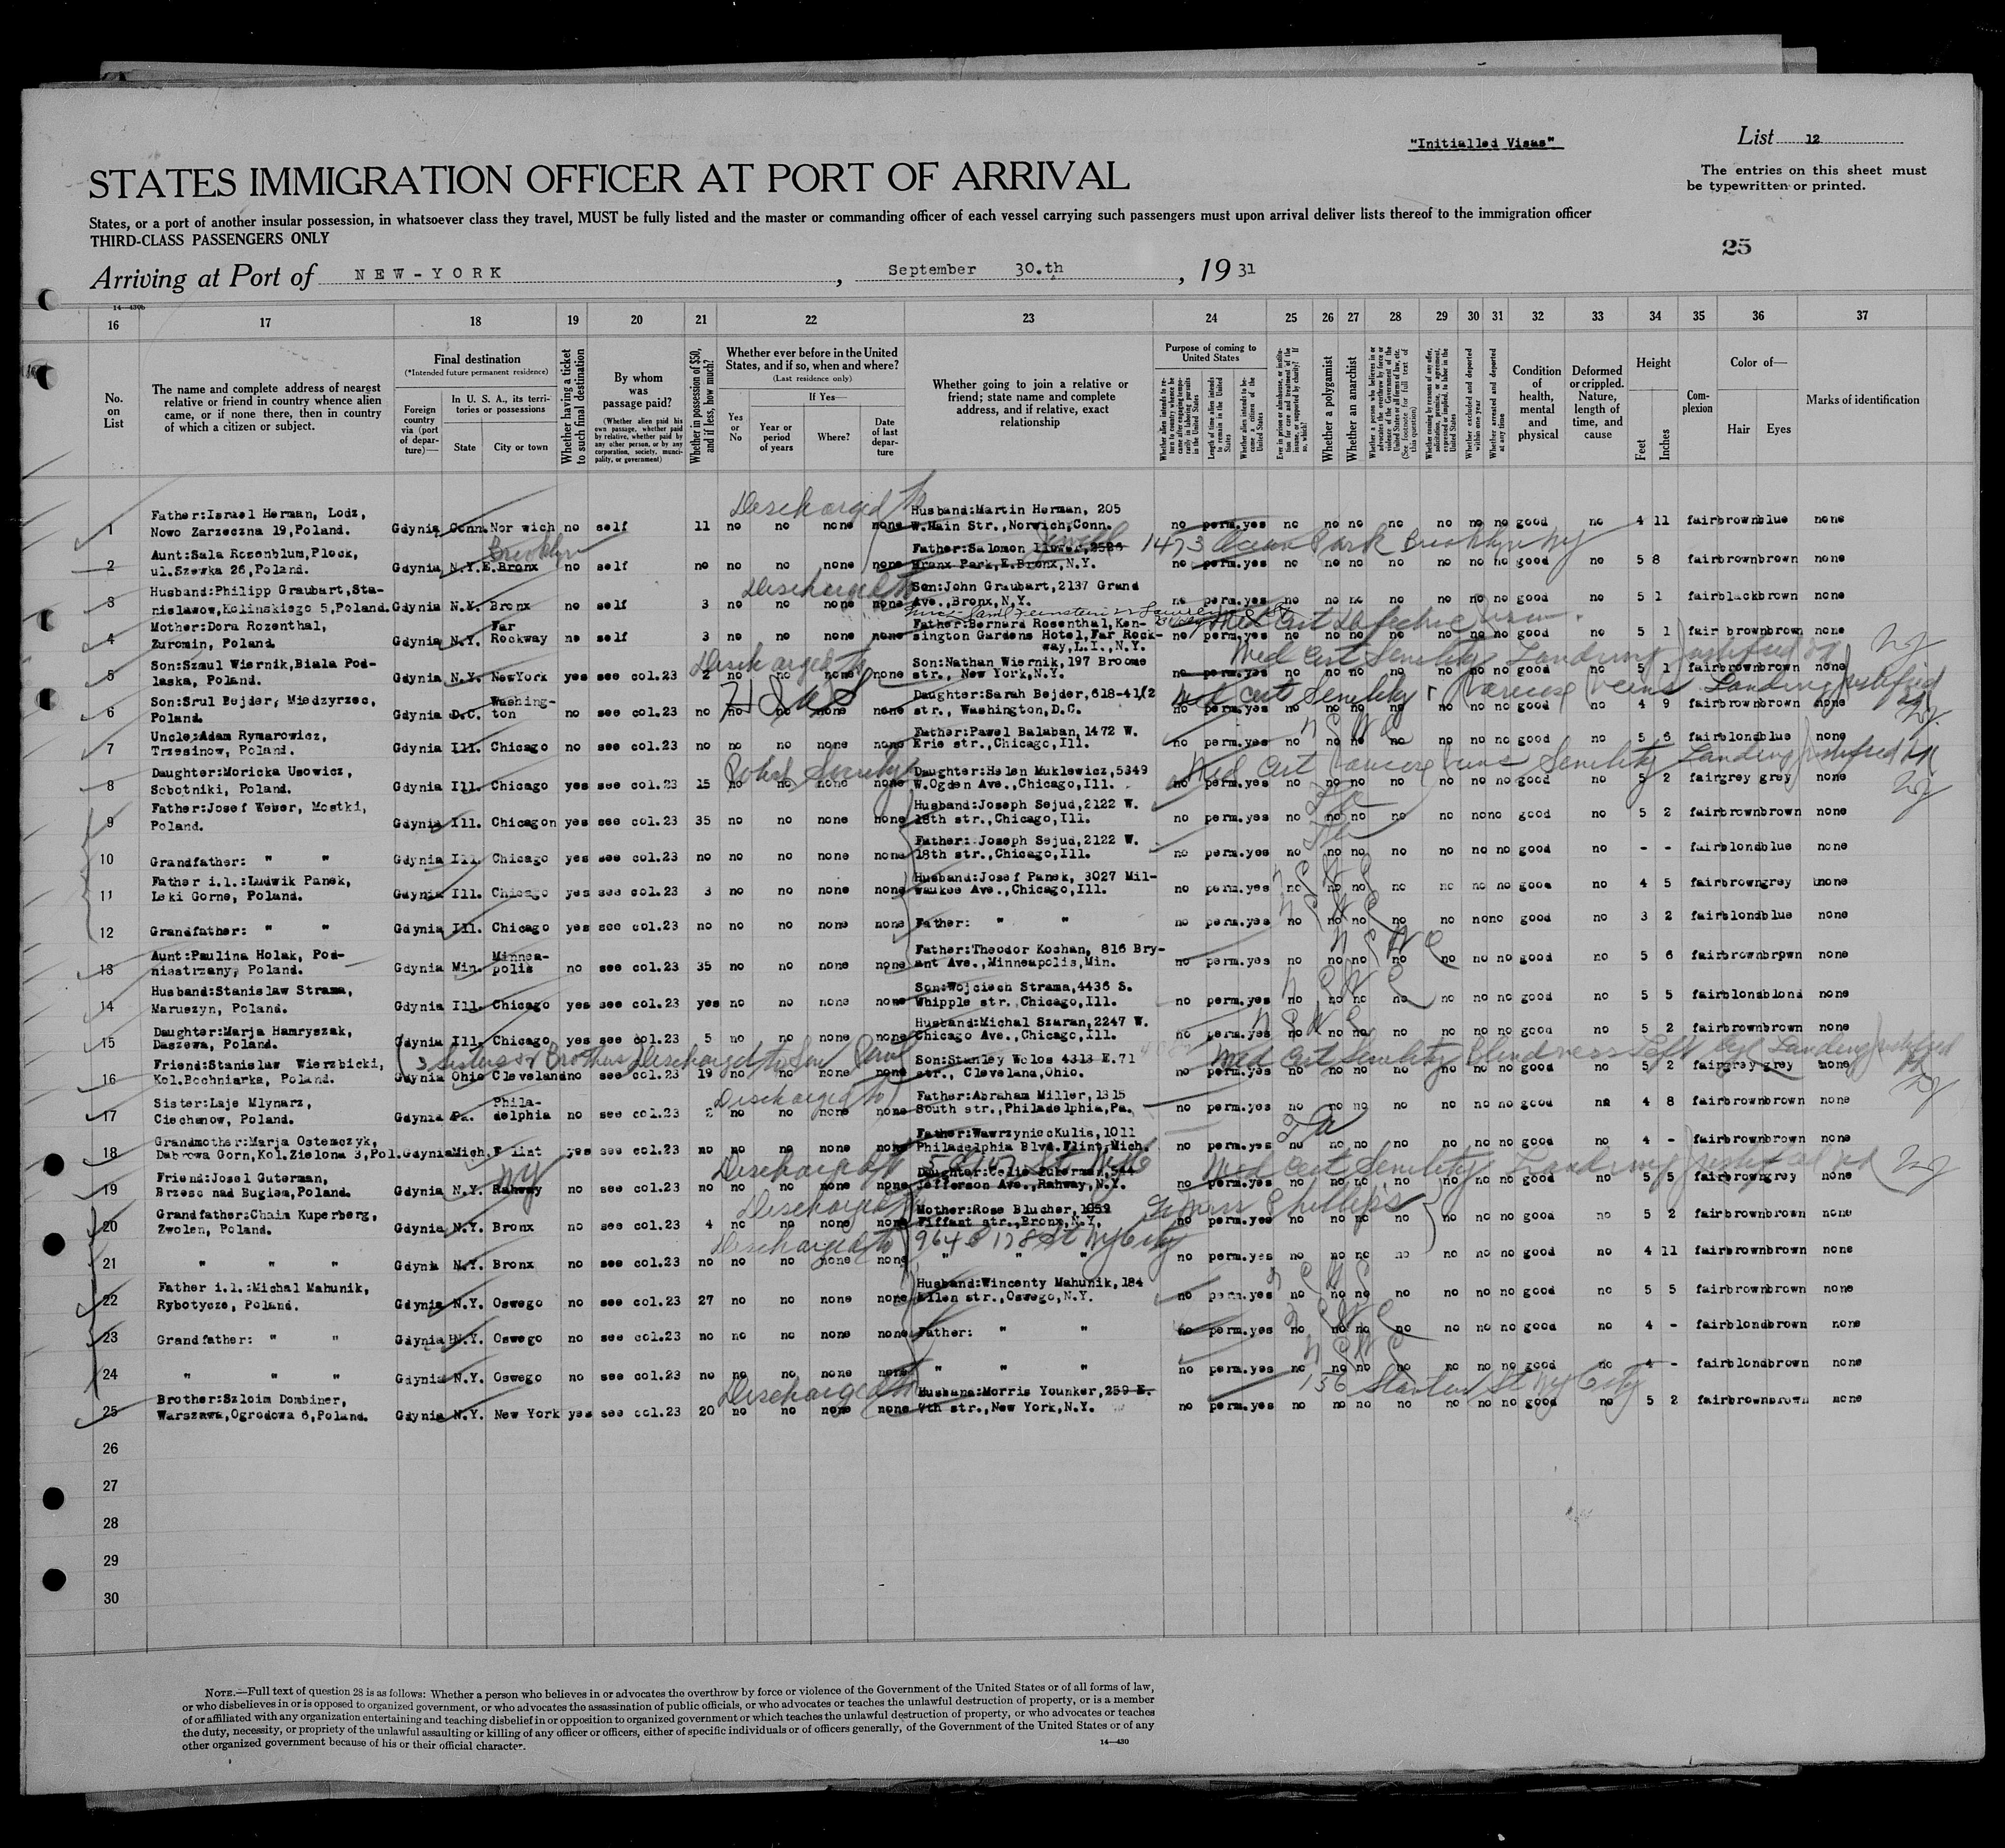 "Initialled Visas"
List 12
STATES IMMIGRATION OFFICER AT PORT OF ARRIVAL
The entries on this sheet must
be typewritten or printed.
States, or a port of another insular possession, in whatsoever class they travel, MUST be fully listed and the master or commanding officer of each vessel carrying such passengers must upon arrival deliver lists thereof to the immigration officer
THIRD-CLASS PASSENGERS ONLY
25
Arriving at Port of NEW-YORK, September 30.th, 1931
14—430b
16 17 18 19 20 21 22 23 24 25 26 27 28 29 30 31 32 33 34 35 36 37
No. on List
The name and complete address of nearest relative or friend in country whence alien came, or if none there, then in country of which a citizen or subject.
Final destination
(*Intended future permanent residence)
Foreign country via (port of departure)—
In U. S. A., its territories or possessions
State
City or town
Whether having a ticket to such final destination
By whom was passage paid?
(Whether alien paid his own passage, whether paid by relative, whether paid by any other person, or by any corporation, society, municipality, or government)
Whether in possession of $50, and if less, how much?
Whether ever before in the United States, and if so, when and where?
(Last residence only)
If Yes—
Yes or No
Year or period of years
Where?
Date of last departure
Whether going to join a relative or friend; state name and complete address, and if relative, exact relationship
Purpose of coming to United States
Whether a polygamist
Whether an anarchist
Whether excluded and deported within one year
Whether arrested and deported at any time
Condition of health, mental and physical
Deformed or crippled. Nature, length of time, and cause
Height
Feet
Inches
Complexion
Color of—
Hair Eyes
Marks of identification
Discharged to
1 Father:Israel Herman, Lodz, Husband:Martin Herman, 205
Nowo Zarzeczna 19,Poland. Gdynia Conn. Nor wich no self 11 no no none none W.Main Str.,Norwich,Conn. no perm.yes no no no no no no no good no 4 11 fair brown blue none
Brooklyn 1473 Ocean Park Brooklyn NY
2 Aunt:Sala Rosenblum,Plock, Father:Salomon
ul.Szewka 26,Poland. Gdynia N.Y. E.Bronx no self no no no none none Bronx Park,E.Bronx,N.Y. no perm.yes no no no no no no no good no 5 8 fair brown brown none
Discharged to
3 Husband:Philipp Graubart,Sta- Son:John Graubart,2137 Grand
nislawow,Kolinskiego 5,Poland. Gdynia N.Y. Bronx no self 3 no no none none Ave.,Bronx,N.Y. no perm.yes no no no no no no no good no 5 1 fair black brown none
Med Cert Defective
4 Mother:Dora Rozenthal, Far Father:Bernard Rosenthal,Ken-
Zuromin, Poland. Gdynia N.Y. Rockway no self 3 no no none none sington Gardens Hotel,Far Rock-
way,L.I.,N.Y. no perm.yes no no no no no no no good no 5 1 fair brown brown none
Discharged to Med Cert Senility Landing justified
5 Son:Szmul Wiernik,Biala Pod- Son:Nathan Wiernik,197 Broome
laska, Poland. Gdynia N.Y. NewYork yes see col.23 2 no no none none str., New York,N.Y. no perm.yes no no no no no no no good no 5 1 fair brown brown none
Med Cert Senility Varicose Veins Landing justified
6 Son:Srul Bejder, Miedzyrzec, Washing- Daughter:Sarah Bejder,618-41/2
Poland. Gdynia D.C. ton no see col.23 no no no none none str., Washington,D.C. no perm.yes no no no no no no no good no 4 9 fair brown brown none
7 Uncle:Adam Rymarowicz, Father:Pawel Balaban,1472 W.
Trzesinow, Poland. Gdynia Ill. Chicago no see col.23 no no no none none Erie str.,Chicago,Ill. no perm.yes no no no no no no no good no 5 6 fair blond blue none
Polish Society Med Cert Varicose Veins Senility Landing justified
8 Daughter:Moricka Usowicz, Daughter:Helen Muklewicz,5349
Sobotniki, Poland. Gdynia Ill. Chicago yes see col.23 15 no no none none W.Ogden Ave.,Chicago,Ill. no perm.yes no no no no no no no good no 5 2 fair grey grey none
9 Father:Josef Weber, Mostki, Husband:Joseph Sejud,2122 W.
Poland. Gdynia Ill. Chicagon yes see col.23 35 no no none none 18th str.,Chicago,Ill. no perm.yes no no no no no nono good no 5 2 fair brown brown none
Father: Joseph Sejud,2122 W.
10 Grandfather: " " Gdynia Ill. Chicago yes see col.23 no no no none none 18th str.,Chicago,Ill. no perm.yes no no no no no no no good no - - fair blond blue none
11 Father i.l.:Ludwik Panek, Husband:Josef Panek, 3027 Mil-
Leki Gorne, Poland. Gdynia Ill. Chicago yes see col.23 3 no no none none waukee Ave.,Chicago,Ill. no perm.yes no no no no no no no good no 4 5 fair brown grey none
12 Grandfather: " " Gdynia Ill. Chicago yes see col.23 no no no none none Father: " " no perm.yes no no no no no nono good no 3 2 fair blond blue none
13 Aunt:Paulina Holak, Pod- Minnea- Father:Theodor Kochan, 816 Bry-
niestrzany, Poland. Gdynia Min. polis no see col.23 35 no no none none ant Ave.,Minneapolis,Min. no perm.yes no no no no no no no good no 5 6 fair brown brpwn none
14 Husband:Stanislaw Strama, Son:Wojciech Strama,4436 S.
Maruszyn, Poland. Gdynia Ill. Chicago yes see col.23 yes no no none none Whipple str.,Chicago,Ill. no perm.yes no no no no no no no good no 5 5 fair blond blond none
15 Daughter:Marja Hamryszak, Husband:Michal Szaran,2247 W.
Daszewa, Poland. Gdynia Ill. Chicago yes see col.23 5 no no none none Chicago Ave.,Chicago,Ill. no perm.yes no no no no no no no good no 5 2 fair brown brown none
Discharged to Son Med Cert Senility Blindness Left Eye Landing justified
16 Friend:Stanislaw Wierzbicki, Son:Stanley Wolos 4313 E.71
Kol.Bochniarka, Poland. Gdynia Ohio Cleveland no see col.23 19 no no none none str., Cleveland,Ohio. no perm.yes no no no no no no no good no 5 2 fair grey grey none
Discharged to
17 Sister:Laje Mlynarz, Phila- Father:Abraham Miller,1315
Ciechanow, Poland. Gdynia Pa. delphia no see col.23 2 no no none none South str.,Philadelphia,Pa. no perm.yes no no no no no no no good no 4 8 fair brown brown none
18 Grandmother:Marja Ostemczyk, Father:WawrzyniecKulis,1011
Dabrowa Gorn,Kol.Zielona 3,Pol. Gdynia Mich. Flint yes see col.23 no no no none none Philadelphia Blvd.Flint,Mich. no perm.yes no no no no no no no good no 4 - fair brown brown none
NY Discharged to Med Cert Senility Landing justified
19 Friend:Josel Guterman, Daughter:Celia Zukerman,544
Brzesc nad Bugiem,Poland. Gdynia N.Y. Rahway no see col.23 no no no none none Jefferson Ave.,Rahway,N.Y. no perm.yes no no no no no no no good no 5 5 fair brown grey none
Discharged to Phillips
20 Grandfather:Chaim Kuperberg, Mother:Rose Blucher,1059
Zwolen, Poland. Gdynia N.Y. Bronx no see col.23 4 no no none none Tiffant str.,Bronx,N.Y. no perm.yes no no no no no no no good no 5 2 fair brown brown none
Discharged to 964 E 178 St NY City
21 " " " Gdynia N.Y. Bronx no see col.23 no no no none none " " " no perm.yes no no no no no no no good no 4 11 fair brown brown none
22 Father i.l.:Michal Mahunik, Husband:Wincenty Mahunik,184
Rybotycze, Poland. Gdynia N.Y. Oswego no see col.23 27 no no none none Ellen str.,Oswego,N.Y. no perm.yes no no no no no no no good no 5 5 fair brown brown none
23 Grandfather: " " Gdynia N.Y. Oswego no see col.23 no no no none none Father: " " no perm.yes no no no no no no no good no 4 - fair blond brown none
24 " " " Gdynia N.Y. Oswego no see col.23 no no no none none " " " no perm.yes no no no no no no no good no 4 - fair blond brown none
Discharged to 156 Stanton St NY City
25 Brother:Szloim Dombiner, Husband:Morris Younker,259 E.
Warszawa,Ogrodowa 6,Poland. Gdynia N.Y. New York yes see col.23 20 no no none none 7th str.,New York,N.Y. no perm.yes no no no no no no no good no 5 2 fair brown brown none
26
27
28
29
30
NOTE.—Full text of question 28 is as follows: Whether a person who believes in or advocates the overthrow by force or violence of the Government of the United States or of all forms of law,
or who disbelieves in or is opposed to organized government, or who advocates the assassination of public officials, or who advocates or teaches the unlawful destruction of property, or is a member
of or affiliated with any organization entertaining and teaching disbelief in or opposition to organized government or which teaches the unlawful destruction of property, or who advocates or teaches
the duty, necessity, or propriety of the unlawful assaulting or killing of any officer or officers, either of specific individuals or of officers generally, of the Government of the United States or of any
other organized government because of his or their official character.
14—430